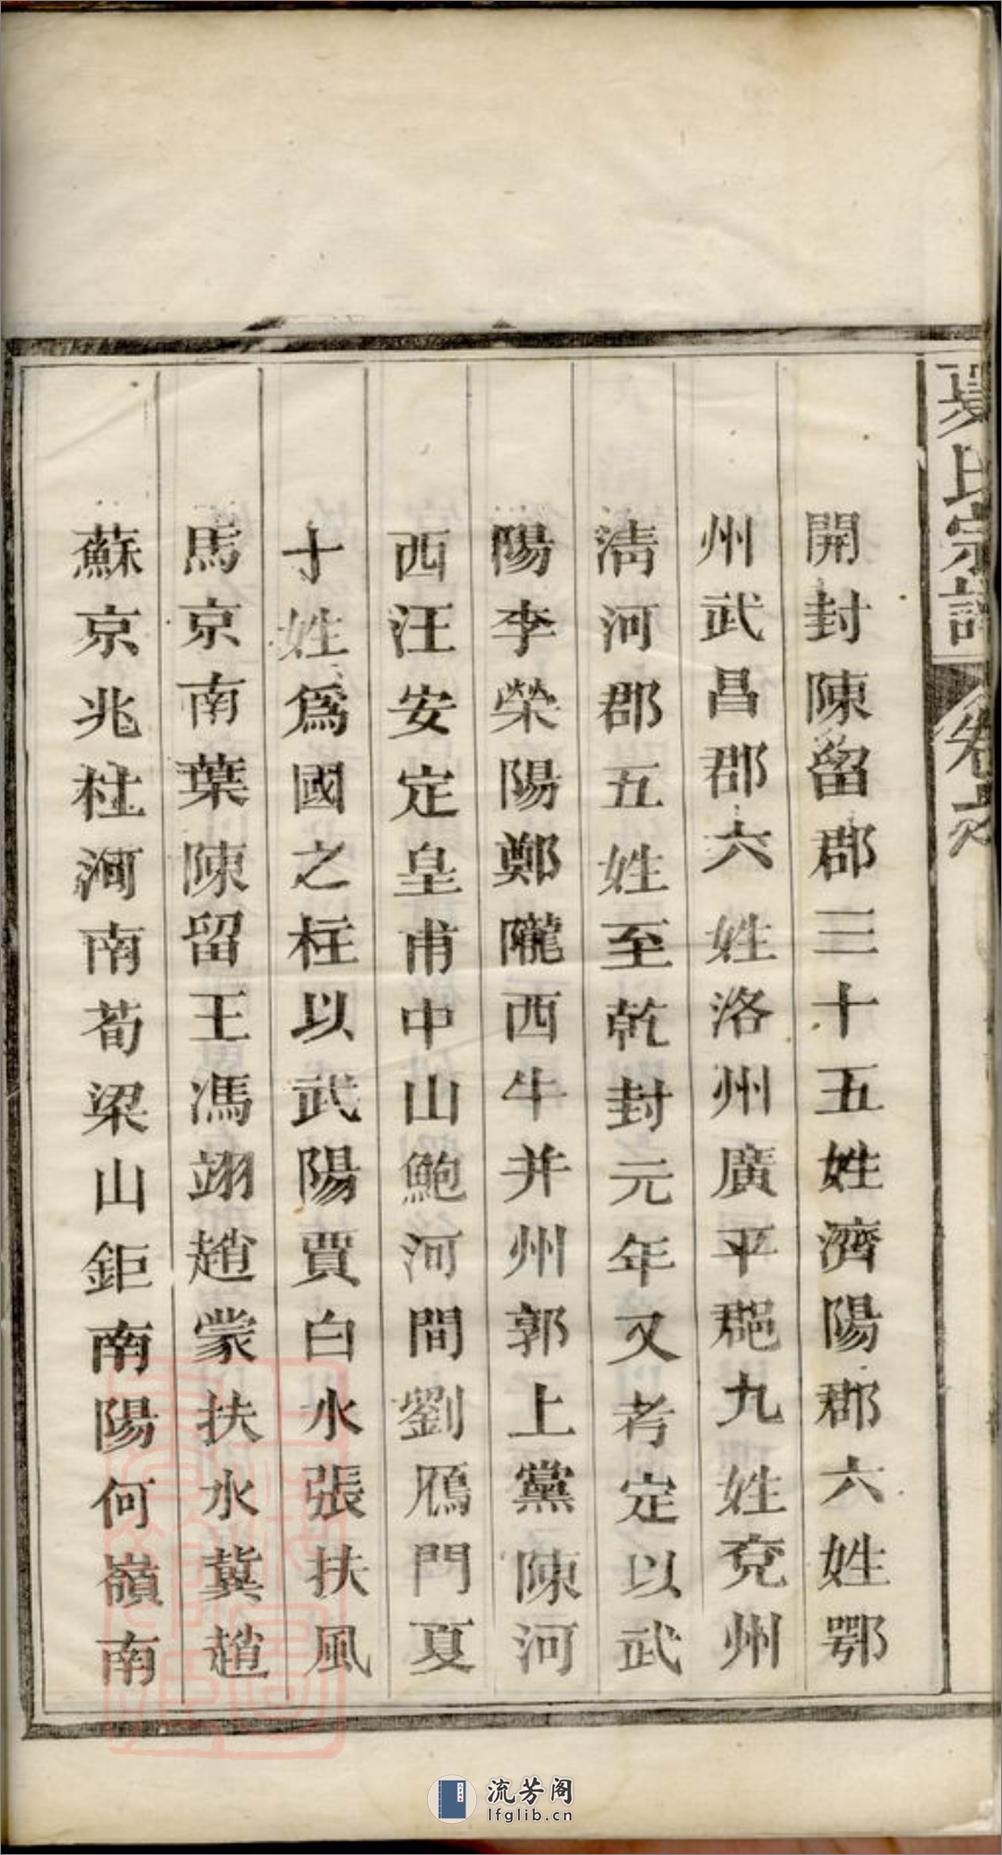 夏氏宗譜
開封陳留郡三十五姓濟陽郡六姓鄂
州武昌郡六姓洛州廣平郡九姓兗州
淸河郡五姓至乾封元年又考定以武
陽李榮陽鄭隴西牛并州郭上黨陳河
西汪安定皇甫中山鮑河間劉鴈門夏
十姓爲國之柱以武陽賈白水張扶風
馬京南葉陳留王馮翊趙蒙扶水冀趙
蘇京兆杜河南荀梁山鉅南陽何嶺南
流芳阁
lfglib.cn